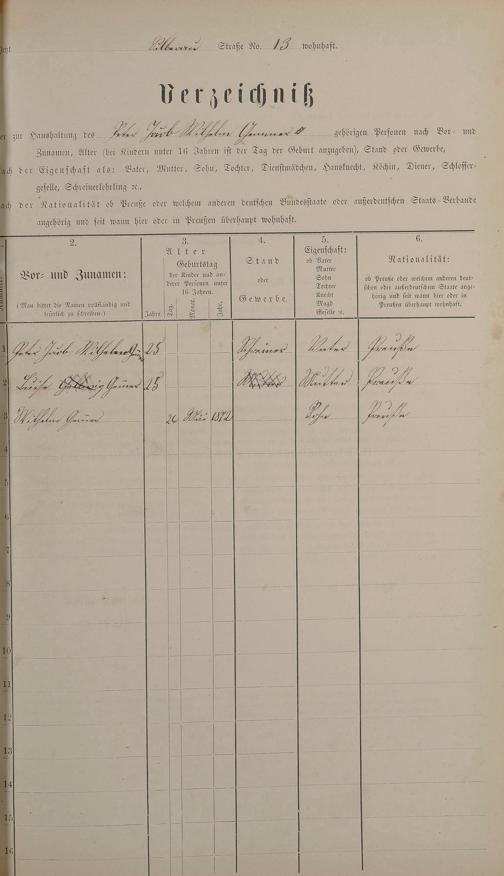 Straße No. 13 wohnhaft.
Verzeichniß
zur Haushaltung des Peter Jacob Wilhelm gehörigen Personen nach Vor- und
Zunamen, Alter (bei Kindern unter 16 Jahren ist der Tag der Geburt anzugeben), Stand oder Gewerbe,
nach der Eigenschaft als: Vater, Mutter, Sohn, Tochter, Dienstmädchen, Hausknecht, Köchin, Diener, Schlosser-
geselle, Schreinerlehrling ꝛc.,
nach der Nationalität ob Preuße oder welchem anderen deutschen Bundesstaate oder außerdeutschen Staats-Verbande
angehörig und seit wann hier oder in Preußen überhaupt wohnhaft.
2. 3. 4. 5. 6.
Vor- und Zunamen:
(Man bittet die Namen vollständig und
leserlich zu schreiben.)
Alter
Geburtstag
der Kinder und an-
derer Personen unter
16 Jahren.
Jahre. Tag. Monat. Jahr.
Stand
oder
Gewerbe.
Eigenschaft:
ob Vater
Mutter
Sohn
Tochter
Knecht
Magd
Geselle ꝛc.
Nationalität:
ob Preuße oder welchem anderen deut-
schen oder außerdeutschen Staate ange-
hörig und seit wann hier oder in
Preußen überhaupt wohnhaft.
1 Peter Jacob Wilhelm 25 Schreiner Vater Preuße
2 Luise 25 Mutter Preuße
3 Wilhelm 26 Mai 1872 Sohn Preuße
4
5
6
7
8
9
10
11
12
13
14
15
16